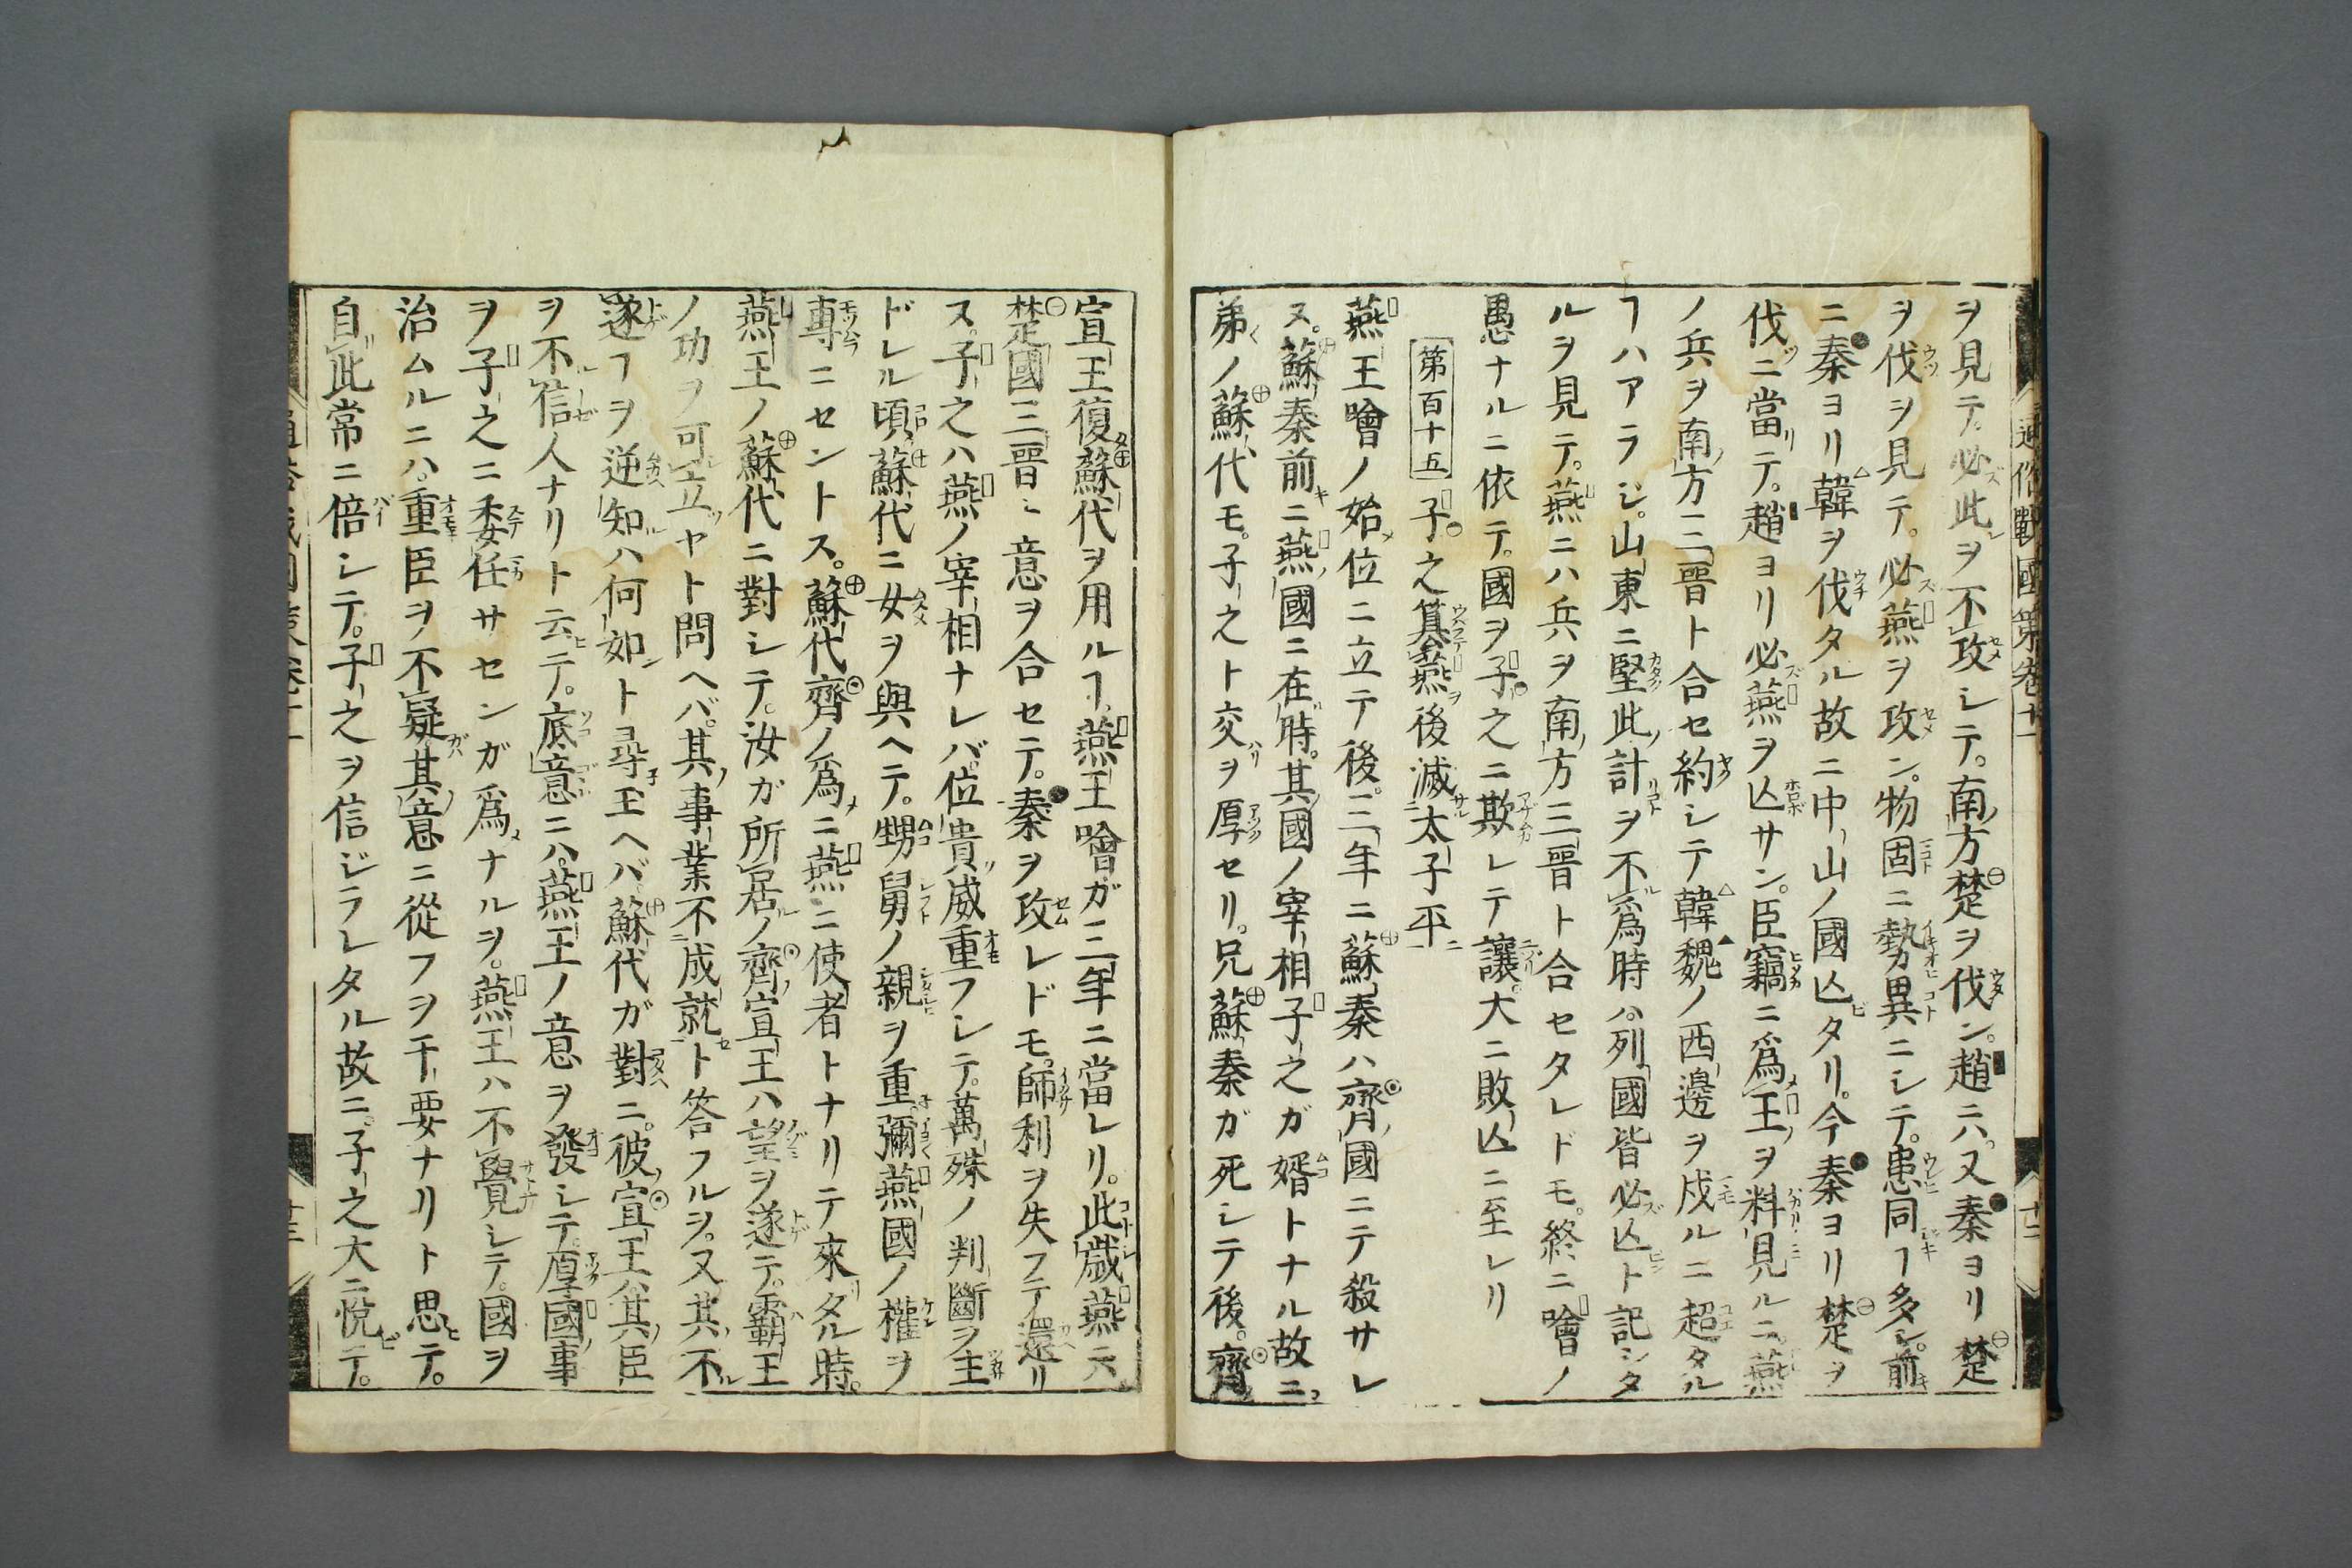 通俗戰國策卷十一
十二
ヲ見テ。必此ヲ不攻シテ。南方楚ヲ伐ン。趙ニハ。又秦ヨリ楚
ヲ伐ヲ見テ。必燕ヲ攻ン。物固ニ勢異ニシテ。患同ヿ多シ。前
ニ秦ヨリ韓ヲ伐タル故ニ中山ノ國亾タリ。今秦ヨリ楚ヲ
伐ニ當テ。趙ヨリ必燕ヲ亾サン。臣竊ニ爲王ヲ料見ルニ。燕
ノ兵ヲ南方三晉ト合セ約シテ韓魏ノ西邊ヲ戍ルニ超タル
ヿハアラシ。山東ニ堅此計ヲ不爲時ハ。列國皆必亾ト記シタ
ルヲ見テ。燕ニハ兵ヲ南方三晉ト合セタレドモ。終ニ噲ノ
愚ナルニ依テ。國ヲ子之ニ欺レテ讓。大ニ敗亾ニ至レリ
第百十五 子之簒燕後滅太子平
燕王噲ノ始位ニ立テ後。三年ニ蘇秦ハ齊國ニテ殺サレ
ヌ。蘇秦前ニ燕國ニ在時。其國ノ宰相子之ガ婿トナル故ニ
弟ノ蘇代モ。子之ト交ヲ厚セリ。兄蘇秦ガ死シテ後。齊
宣王復蘇代ヲ用ルヿ。燕王噲ガ三年ニ當レリ。此歳燕ニハ
楚國三晉ト意ヲ合セテ。秦ヲ攻レドモ。師利ヲ失フテ還リ
ヌ。子之ハ燕ノ宰相ナレバ。位貴威重フシテ。萬殊ノ判斷ヲ主
ドレル頃。蘇代ニ女ヲ與ヘテ。甥舅ノ親ヲ重。彌燕國ノ權ヲ
專ニセントス。蘇代齊ノ爲ニ燕ニ使者トナリテ來タル時。
燕王ノ蘇代ニ對シテ。汝ガ所居ノ齊宣王ハ望ヲ遂テ。霸王
ノ功ヲ可立ヤト問ヘバ。其事業不成就ト答フルヲ。又其不
遂ヿヲ逆知ハ何如ト尋玉ヘバ。蘇代ガ對ニ。彼宣王ハ其臣
ヲ不信人ナリト云テ。底意ニハ。燕王ノ意ヲ發シテ。厚國事
ヲ子之ニ委任サセンガ爲ナルヲ。燕王ハ不覺シテ。國ヲ
治ムルニハ。重臣ヲ不疑其意ニ從フヲ干要ナリト思テ。
自此常ニ倍シテ。子之ヲ信ジラレタル故ニ。子之大ニ悅テ。